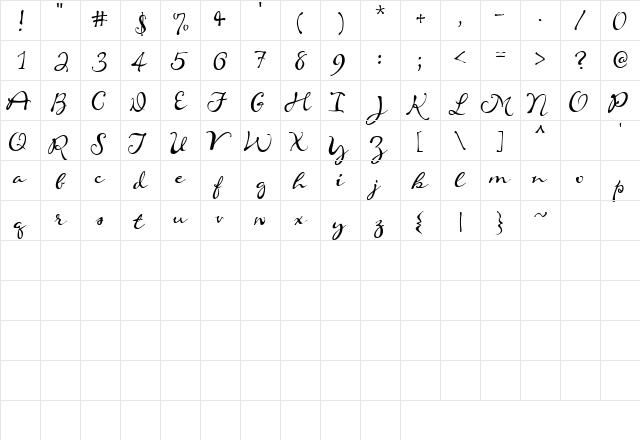 ! " # $ % & ' ( ) * + , - . / 0
1 2 3 4 5 6 7 8 9 : ; < = > ? @
A B C D E F G H I J K L M N O P
Q R S T U V W X Y Z [ \ ] ^ `
a b c d e f g h i j k l m n o p
q r s t u v w x y z { | } ~